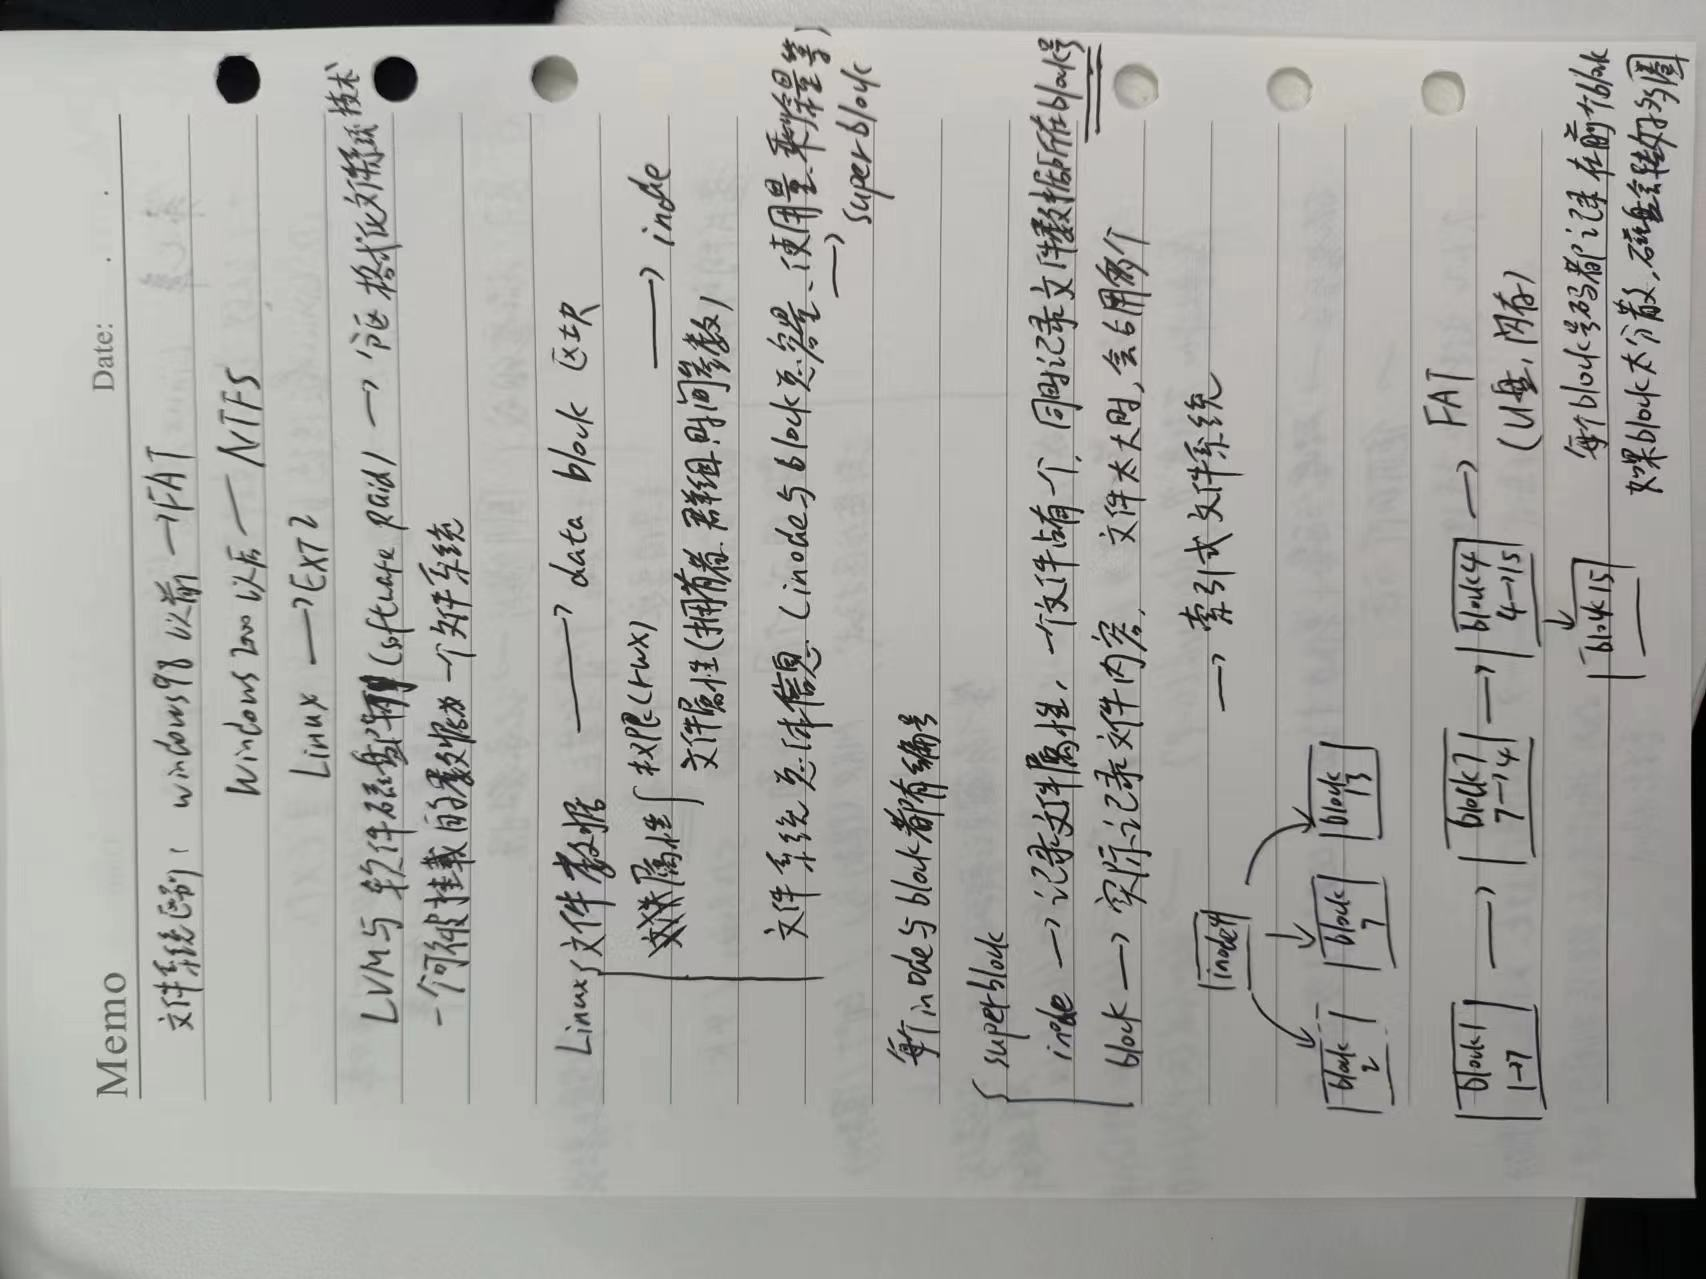 Memo
Date:
文件系统区别: windows98 以前 → FAT
Windows 2000 以后 — NTFS
Linux → EXT2
LVM与软件磁盘阵列 (software raid) → 格式化文件系统技术
一个可被挂载的数据为一个文件系统
Linux 文件数据 → data block 区块
属性 权限(rwx) → inode
文件属性(拥有者.群组.时间参数)
文件系统总体信息 (inode与block总容量、使用量.剩余量等)
→ super block
每个inode与block都有编号
superblock
inode → 记录文件属性, 一个文件占有一个, 同时记录文件数据所在block号
block → 实际记录文件内容, 文件太大时, 会占用多个
→ 索引式文件系统
inode4
block 2
block 7
block 13
block1 1→7 → block7 7→4 → block4 4→15 → FAT
(U盘, 闪存)
block15
每个block号码都记录在前个block
如果block太分散, 磁盘会转好多圈